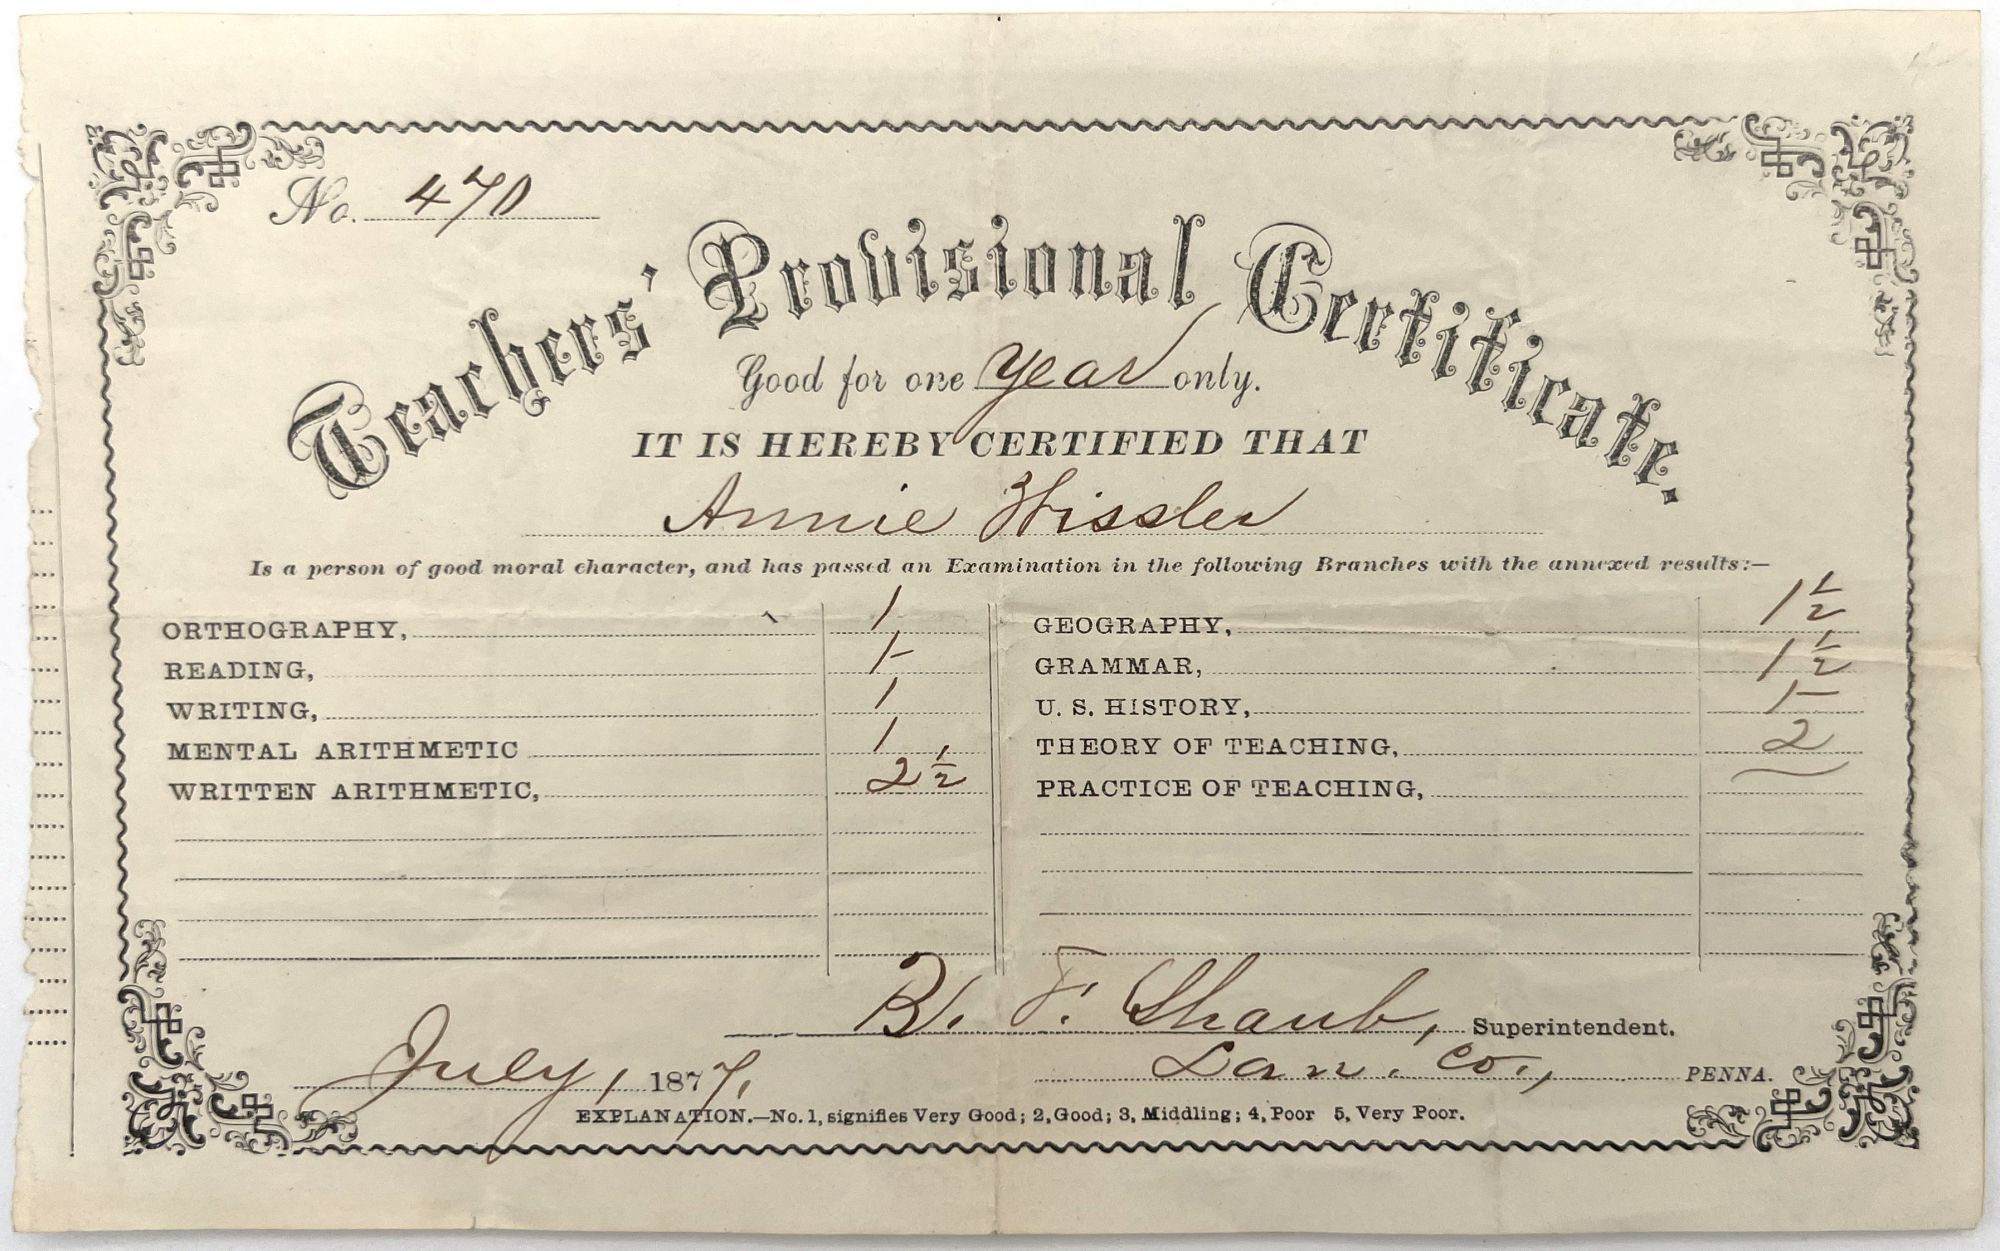 No. 470
Teachers' Provisional Certificate.
Good for one year only.
IT IS HEREBY CERTIFIED THAT
Annie Wissler
Is a person of good moral character, and has passed an Examination in the following Branches with the annexed results:—
ORTHOGRAPHY, 1
READING, 1-
WRITING, 1
MENTAL ARITHMETIC 1
WRITTEN ARITHMETIC, 2 1/2
GEOGRAPHY, 1 1/2
GRAMMAR, 1 1/2
U. S. HISTORY, 1-
THEORY OF TEACHING, 2
PRACTICE OF TEACHING, —
B. F. Shaub, Superintendent.
July, 1877. Lan. Co., PENNA.
EXPLANATION.—No. 1, signifies Very Good; 2, Good; 3, Middling; 4, Poor 5, Very Poor.